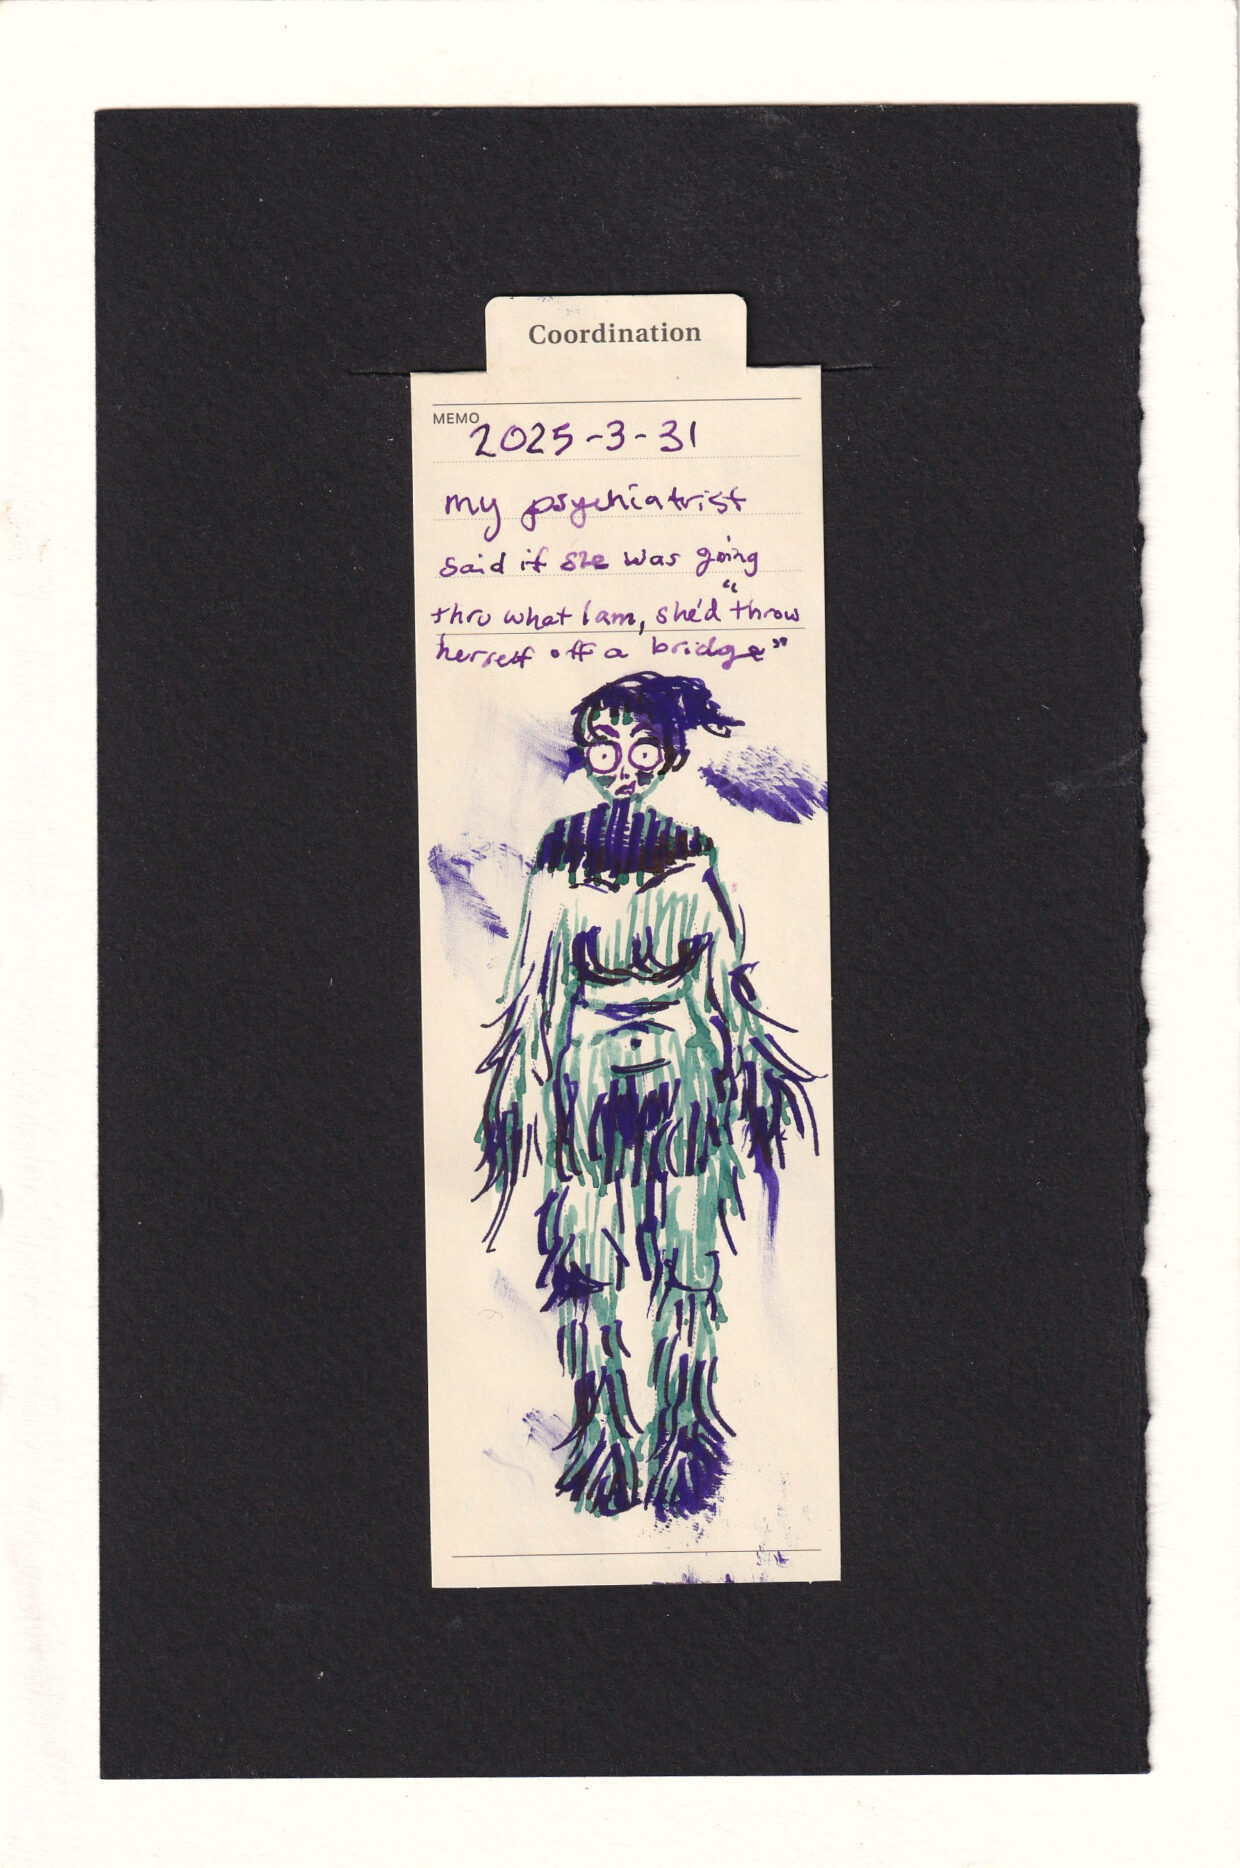 Coordination
MEMO
2025-3-31
my psychiatrist
said if she was going
thru what I am, she'd "throw
herself off a bridge"